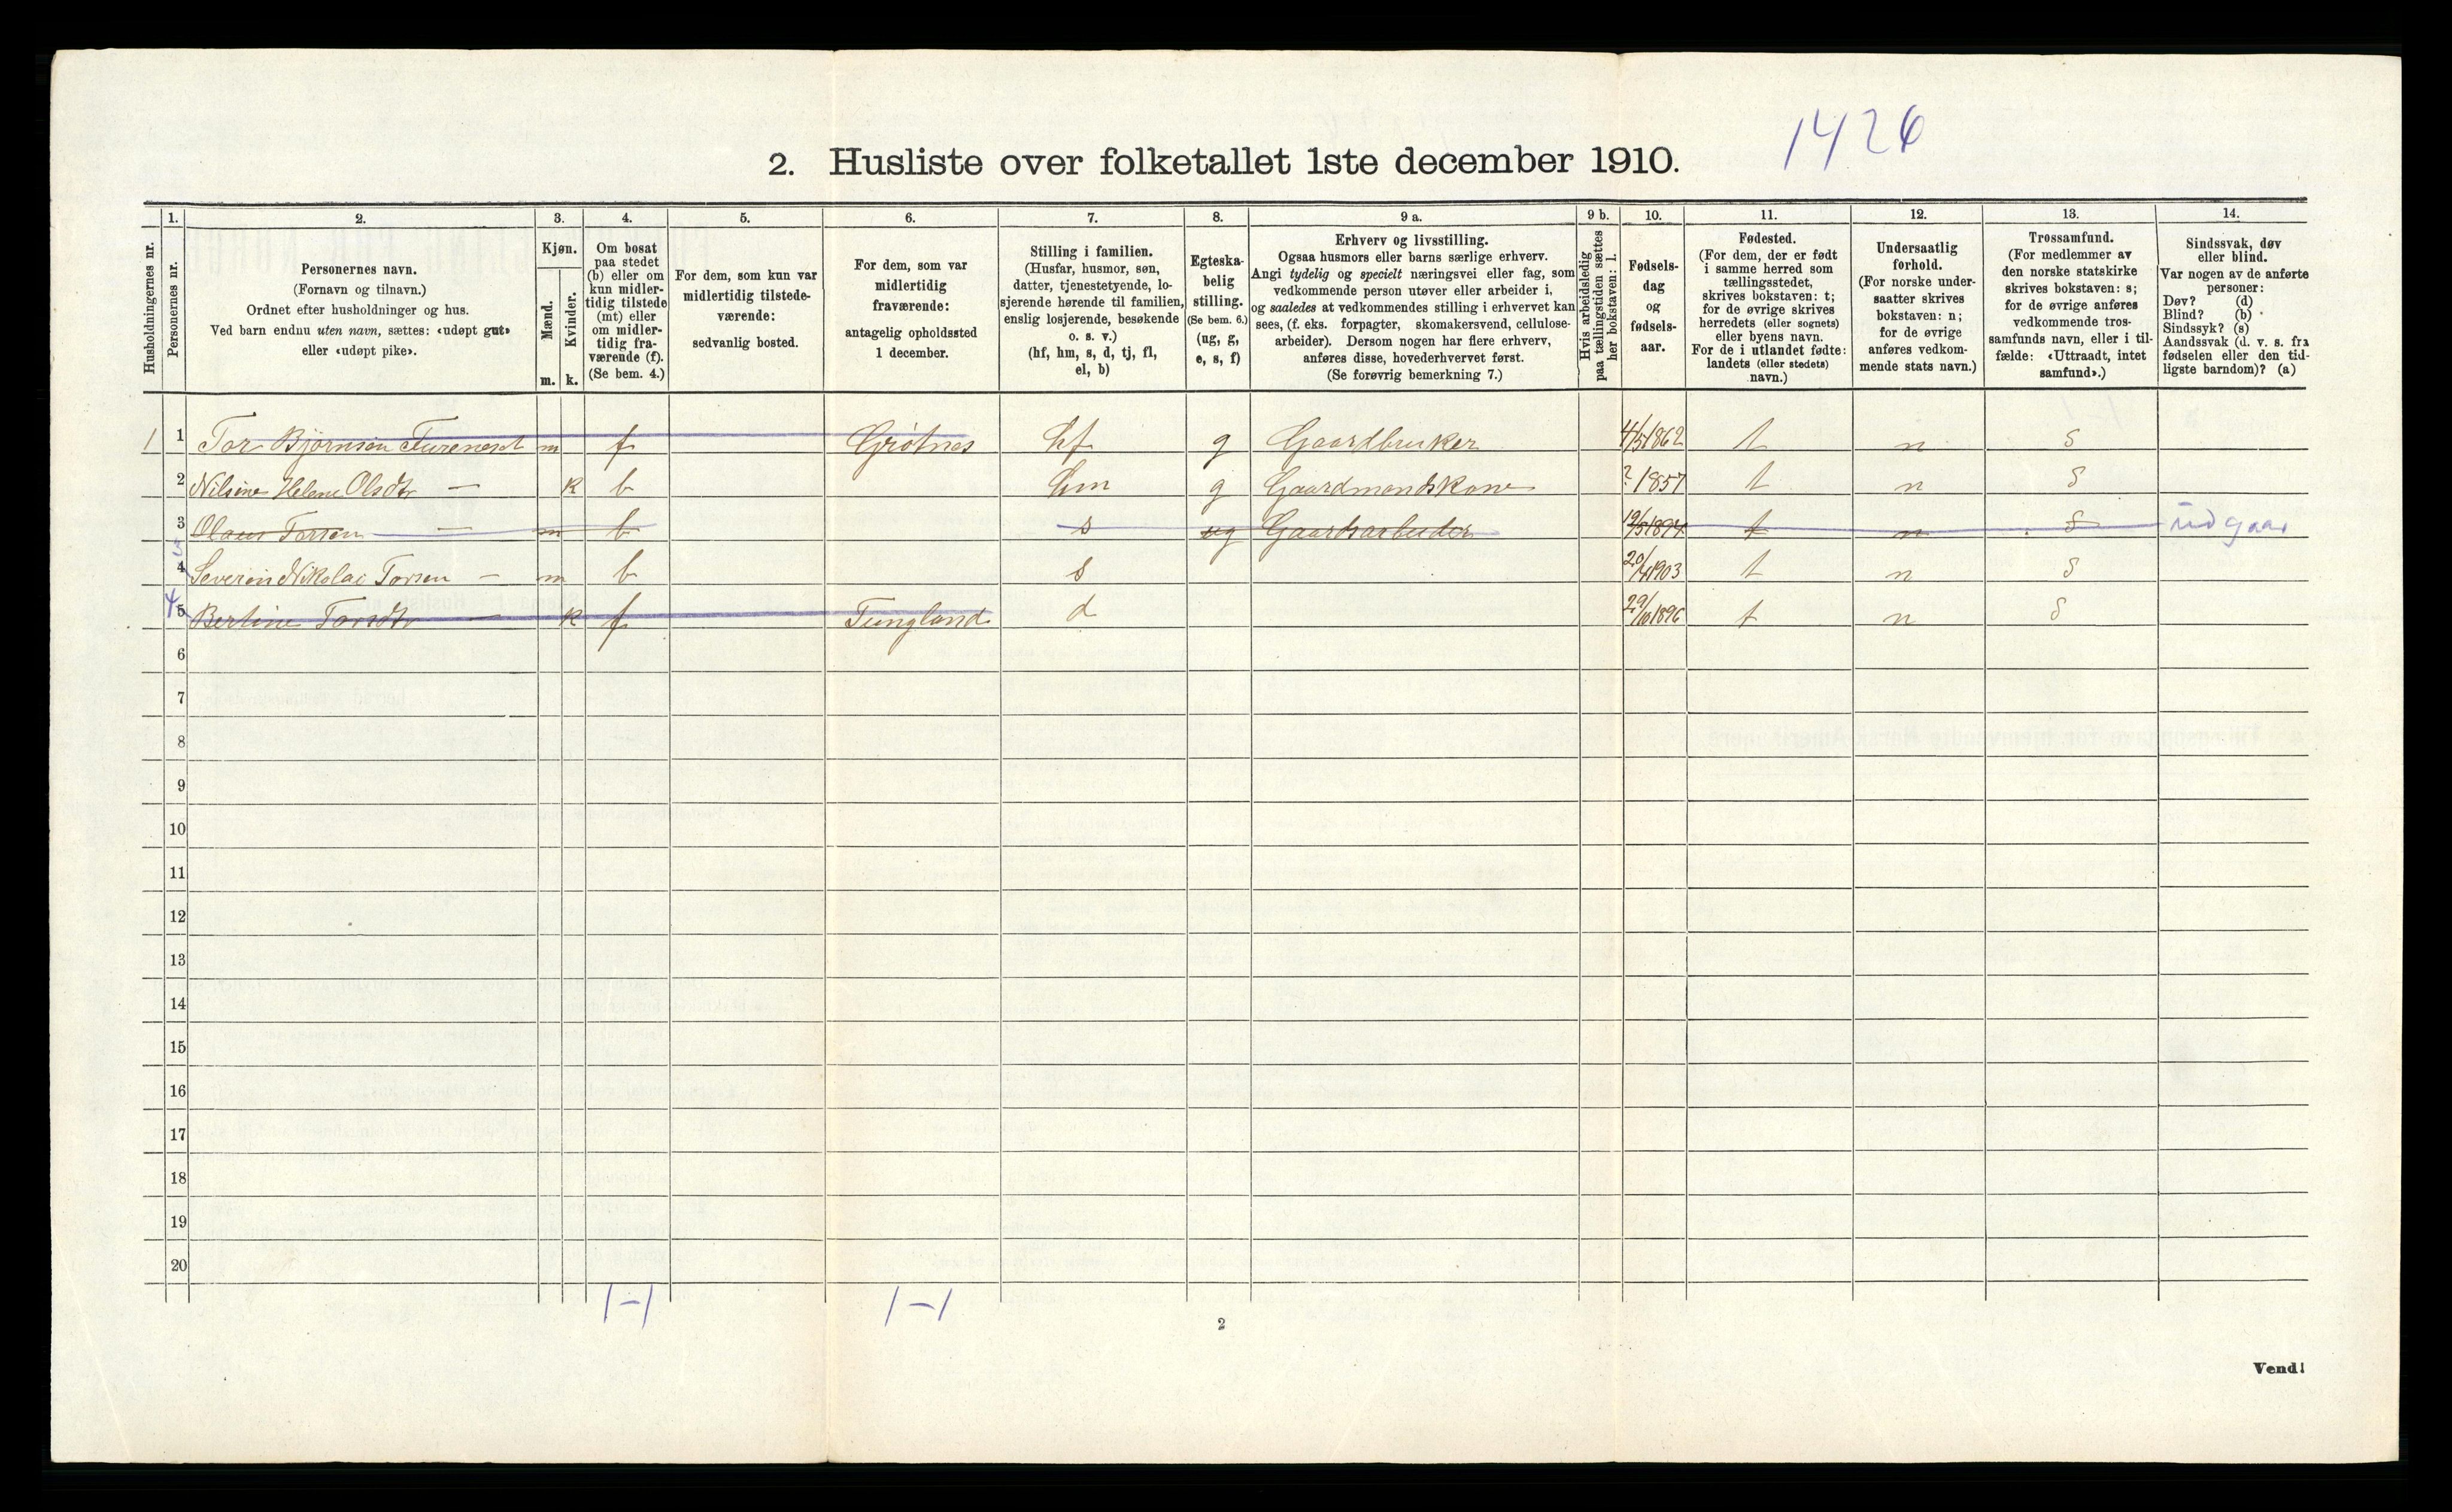 1426
2. Husliste over folketallet 1ste december 1910.
Husholdningernes nr.
1.
Personernes nr.
2.
Personernes navn.
(Fornavn og tilnavn.)
Ordnet efter husholdninger og hus.
Ved barn endnu uten navn, sættes: «udøpt gut»
eller «udøpt pike».
3.
Kjøn.
Mænd.
Kvinder.
m. k.
4.
Om bosat
paa stedet
(b) eller om
kun midler-
tidig tilstede
(mt) eller
om midler-
tidig fra-
værende (f).
(Se bem. 4.)
5.
For dem, som kun var
midlertidig tilstede-
værende:
sedvanlig bosted.
6.
For dem, som var
midlertidig
fraværende:
antagelig opholdssted
1 december.
7.
Stilling i familien.
(Husfar, husmor, søn,
datter, tjenestetyende, lo-
sjerende hørende til familien,
enslig losjerende, besøkende
o. s. v.)
(hf, hm, s, d, tj, fl,
el, b)
8.
Egteska-
belig
stilling.
(Se bem. 6.)
(ug, g,
e, s, f)
9 a.
Erhverv og livsstilling.
Ogsaa husmors eller barns særlige erhverv.
Angi tydelig og specielt næringsvei eller fag, som
vedkommende person utøver eller arbeider i,
og saaledes at vedkommendes stilling i erhvervet kan
sees, (f. eks. forpagter, skomakersvend, cellulose-
arbeider). Dersom nogen har flere erhverv,
anføres disse, hovederhvervet først.
(Se forøvrig bemerkning 7.)
9 b.
Hvis arbeidsledig
paa tællingstiden sættes
her bokstaven: l.
10.
Fødsels-
dag
og
fødsels-
aar.
11.
Fødested.
(For dem, der er født
i samme herred som
tællingsstedet,
skrives bokstaven: t;
for de øvrige skrives
herredets (eller sognets)
eller byens navn.
For de i utlandet fødte:
landets (eller stedets)
navn.)
12.
Undersaatlig
forhold.
(For norske under-
saatter skrives
bokstaven: n;
for de øvrige
anføres vedkom-
mende stats navn.)
13.
Trossamfund.
(For medlemmer av
den norske statskirke
skrives bokstaven: s;
for de øvrige anføres
vedkommende tros-
samfunds navn, eller i til-
fælde: «Uttraadt, intet
samfund».)
14.
Sindssvak, døv
eller blind.
Var nogen av de anførte
personer:
Døv? (d)
Blind? (b)
Sindssyk? (s)
Aandssvak (d. v. s. fra
fødselen eller den tid-
ligste barndom)? (a)
1 1 Tor Bjørnsen Furenest m f Grótnes hf g Gaardbruker 4/5 1862 t n s
2 Nilsine Helene Olsdtr — k b hm g Gaardmandskone ? 1857 t n s
3 Olaus Torsen — m b s ug Gaardsarbeider 19/5 1894 t n s udgaar
3 4 Severin Nikolai Torsen — m b s 20/4 1903 t n s
4 5 Bertine Torsdtr — k f Tungland d 29/10 1896 t n s
6
7
8
9
10
11
12
13
14
15
16
17
18
19
20
1-1 1-1
2
Vend!